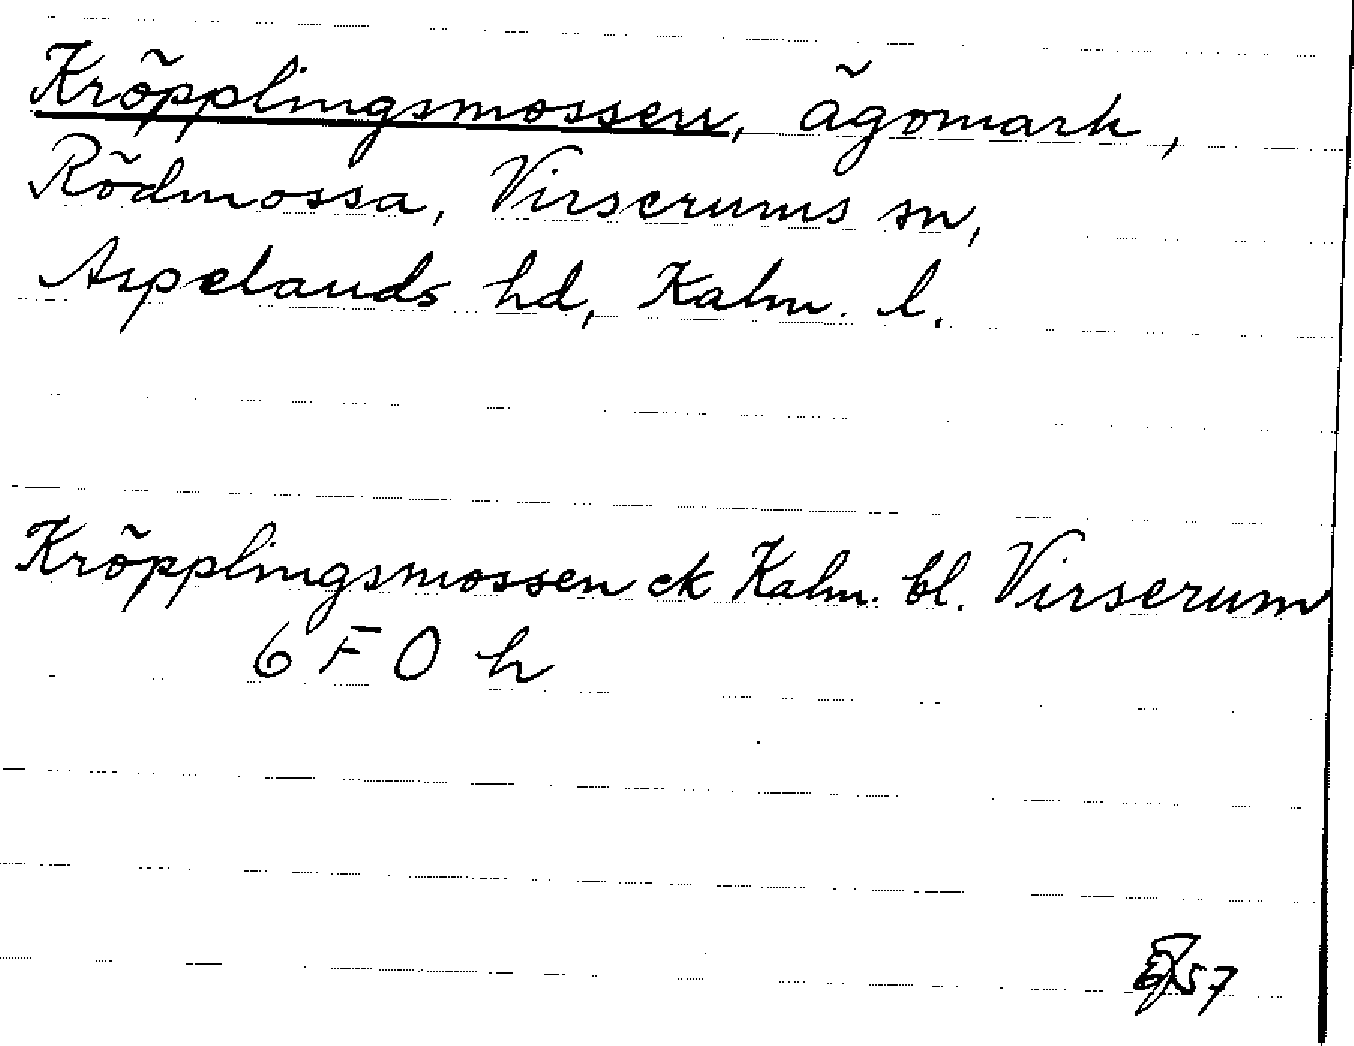 Kröpplingsmossen, ägomark,
Rödmossa, Virserums sn,
Aspelands hd, Kalm. l.
Kröpplingsmossen ek Kalm. bl. Virserum
6 F 0 h
57